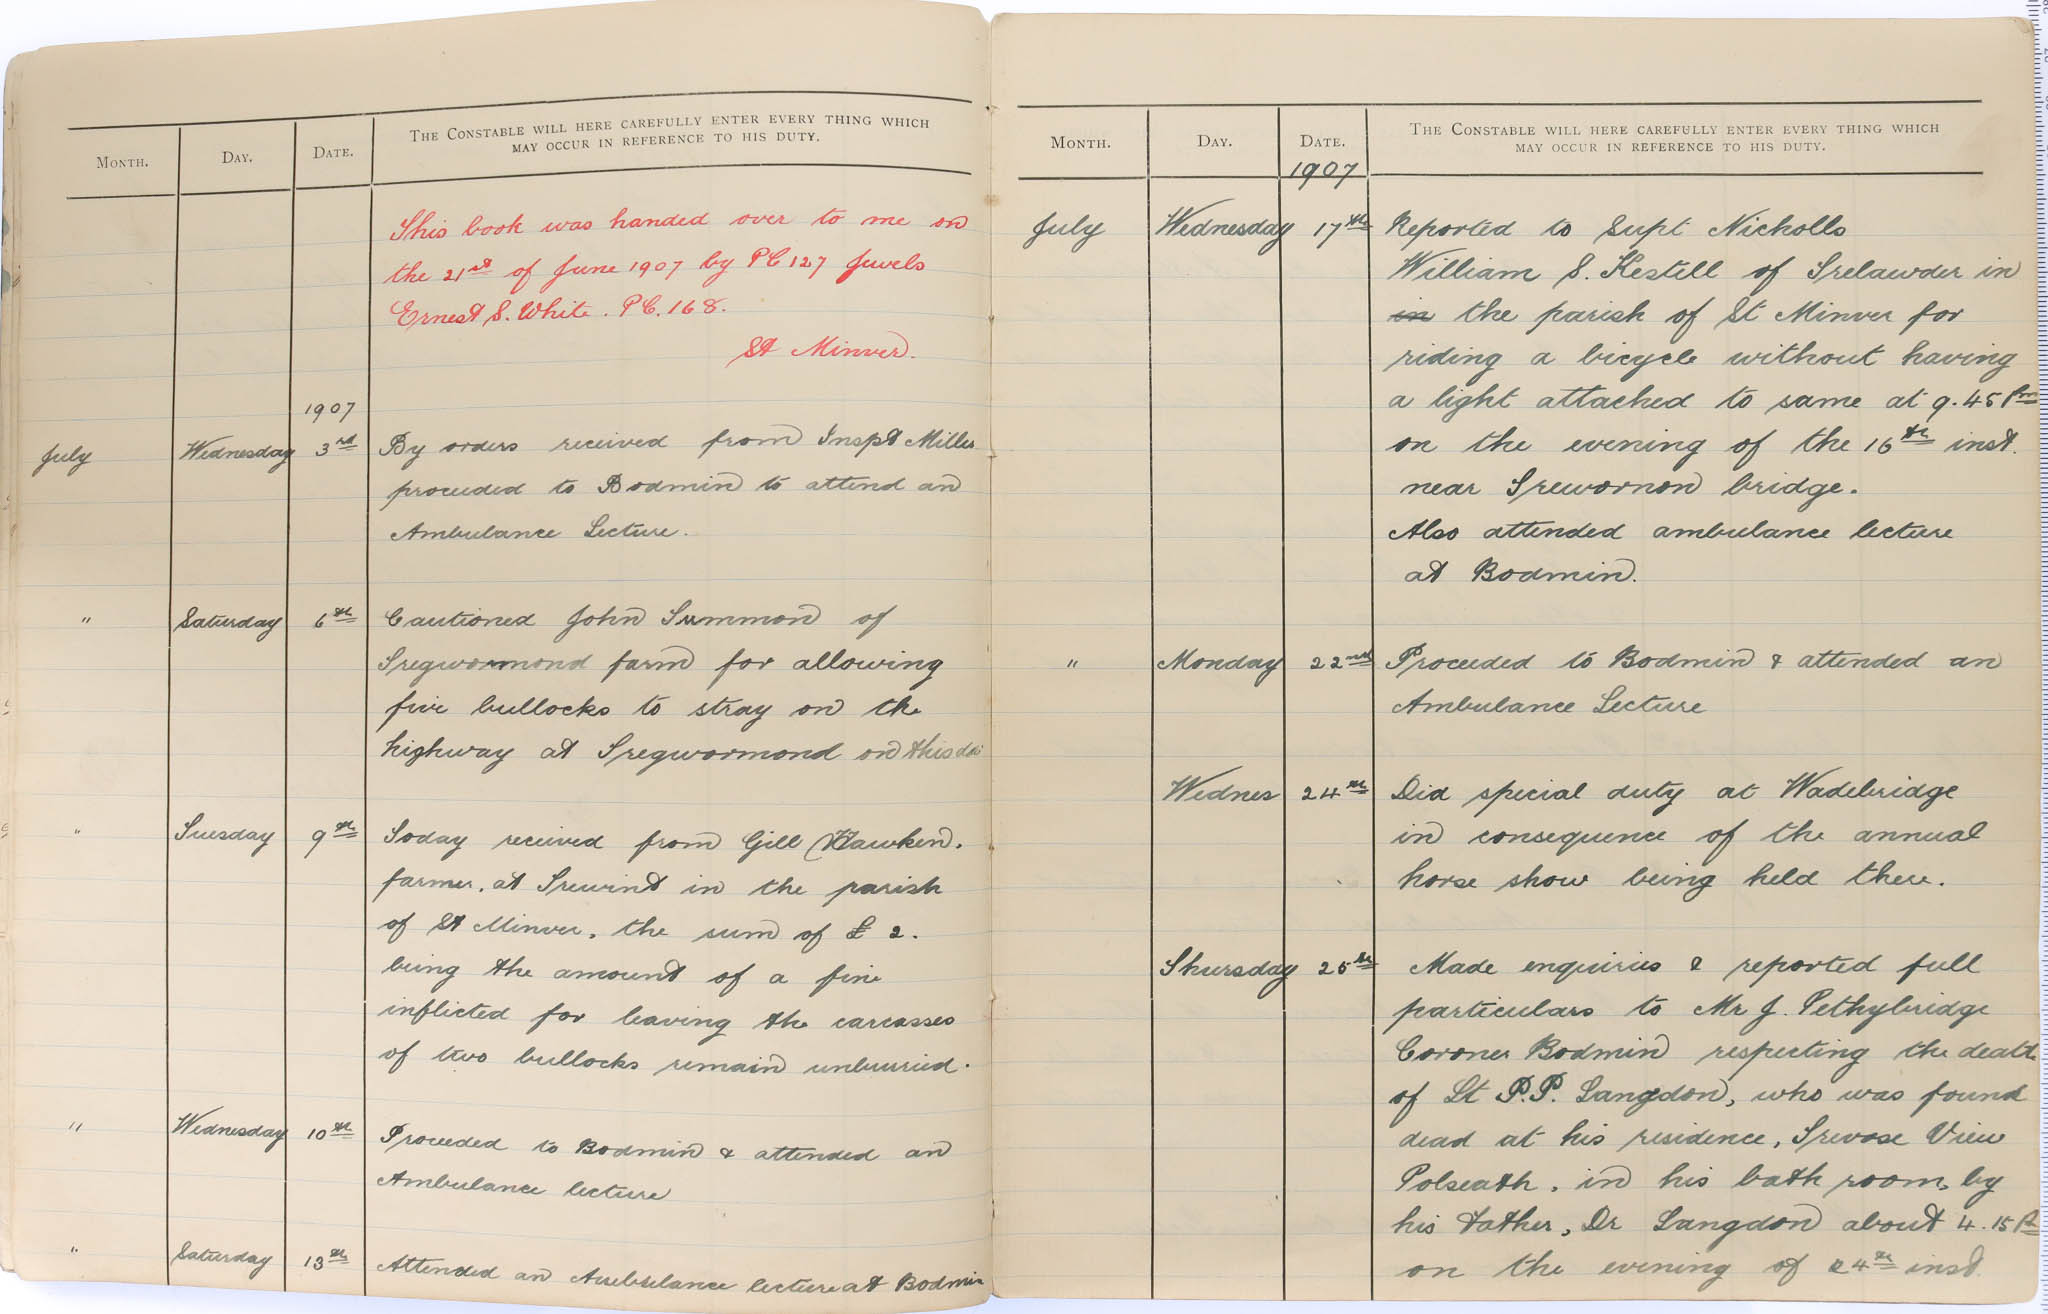 Month. Day. Date. The Constable will here carefully enter every thing which
may occur in reference to his duty.
This book was handed over to me on
the 21st of June 1907 by PC 127 Jewels
Ernest S. White. P.C. 168.
St Minver.
1907
July Wednesday 3rd By orders received from Inspt Miller
proceeded to Bodmin to attend an
Ambulance Lecture.
" Saturday 6th Cautioned John Summon of
Tregwormond farm for allowing
five bullocks to stray on the
highway at Tregwormond on this da
" Tuesday 9th Today received from Gill Hawken.
farmer. at Trewint in the parish
of St Minver. the sum of £2.
being the amount of a fine
inflicted for leaving the carcasses
of two bullocks remain unburried.
" Wednesday 10th Proceeded to Bodmin & attended an
Ambulance lecture
" Saturday 13th Attended an Ambulance lecture at Bodmin
Month. Day. Date. The Constable will here carefully enter every thing which
may occur in reference to his duty.
1907
July Wednesday 17th Reported to Supt Nicholls
William S. Kestell of Trelawder in
in the parish of St Minver for
riding a bicycle without having
a light attached to same at 9.45 Pm
on the evening of the 16th inst.
near Trewornon bridge.
Also attended ambulance lecture
at Bodmin.
" Monday 22nd Proceeded to Bodmin & attended an
Ambulance Lecture
Wednes 24th Did special duty at Wadebridge
in consequence of the annual
horse show being held there.
Thursday 25th Made enquiries & reported full
particulars to Mr J. Pethybridge
Coroner Bodmin respecting the death
of Lt P.P. Langdon, who was found
dead at his residence, Trevose View
Polseath, in his bath room, by
his father, Dr Langdon about 4.15 P
on the evening of 24th inst.